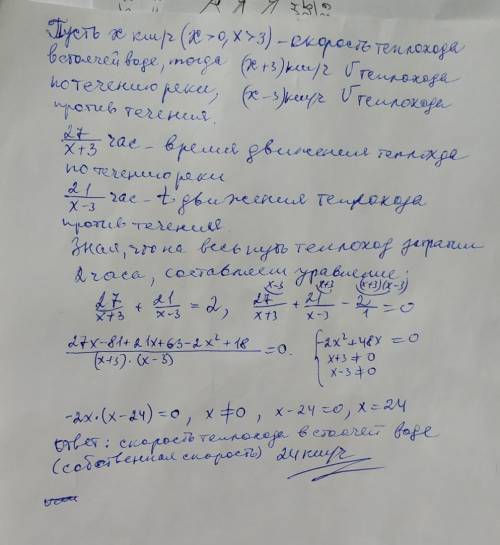 Пусть x км/ч (x > 0, x > 3) – скорость теплохода
в стоячей воде, тогда (x+3) км/ч V теплохода
по течению реки, (x-3) км/ч V теплохода
против течения.
27/(x+3) час – время движения теплохода
по течению реки
21/(x-3) час – t движения теплохода
против течения.
Зная, что на весь путь теплоход затратил
2 часа, составляем уравнение:
27/(x+3) + 21/(x-3) = 2, 27/(x+3) (x-3 + 21/(x-3) (x+3 - 2/1 (x+3)(x-3) = 0
(27x-81+21x+63-2x²+18)/((x+3)·(x-3)) = 0. { -2x²+48x = 0
x+3 ≠ 0
x-3 ≠ 0
-2x·(x-24) = 0, x ≠ 0, x-24 = 0, x = 24
Ответ: скорость теплохода в стоячей воде
(собственная скорость) 24 км/ч